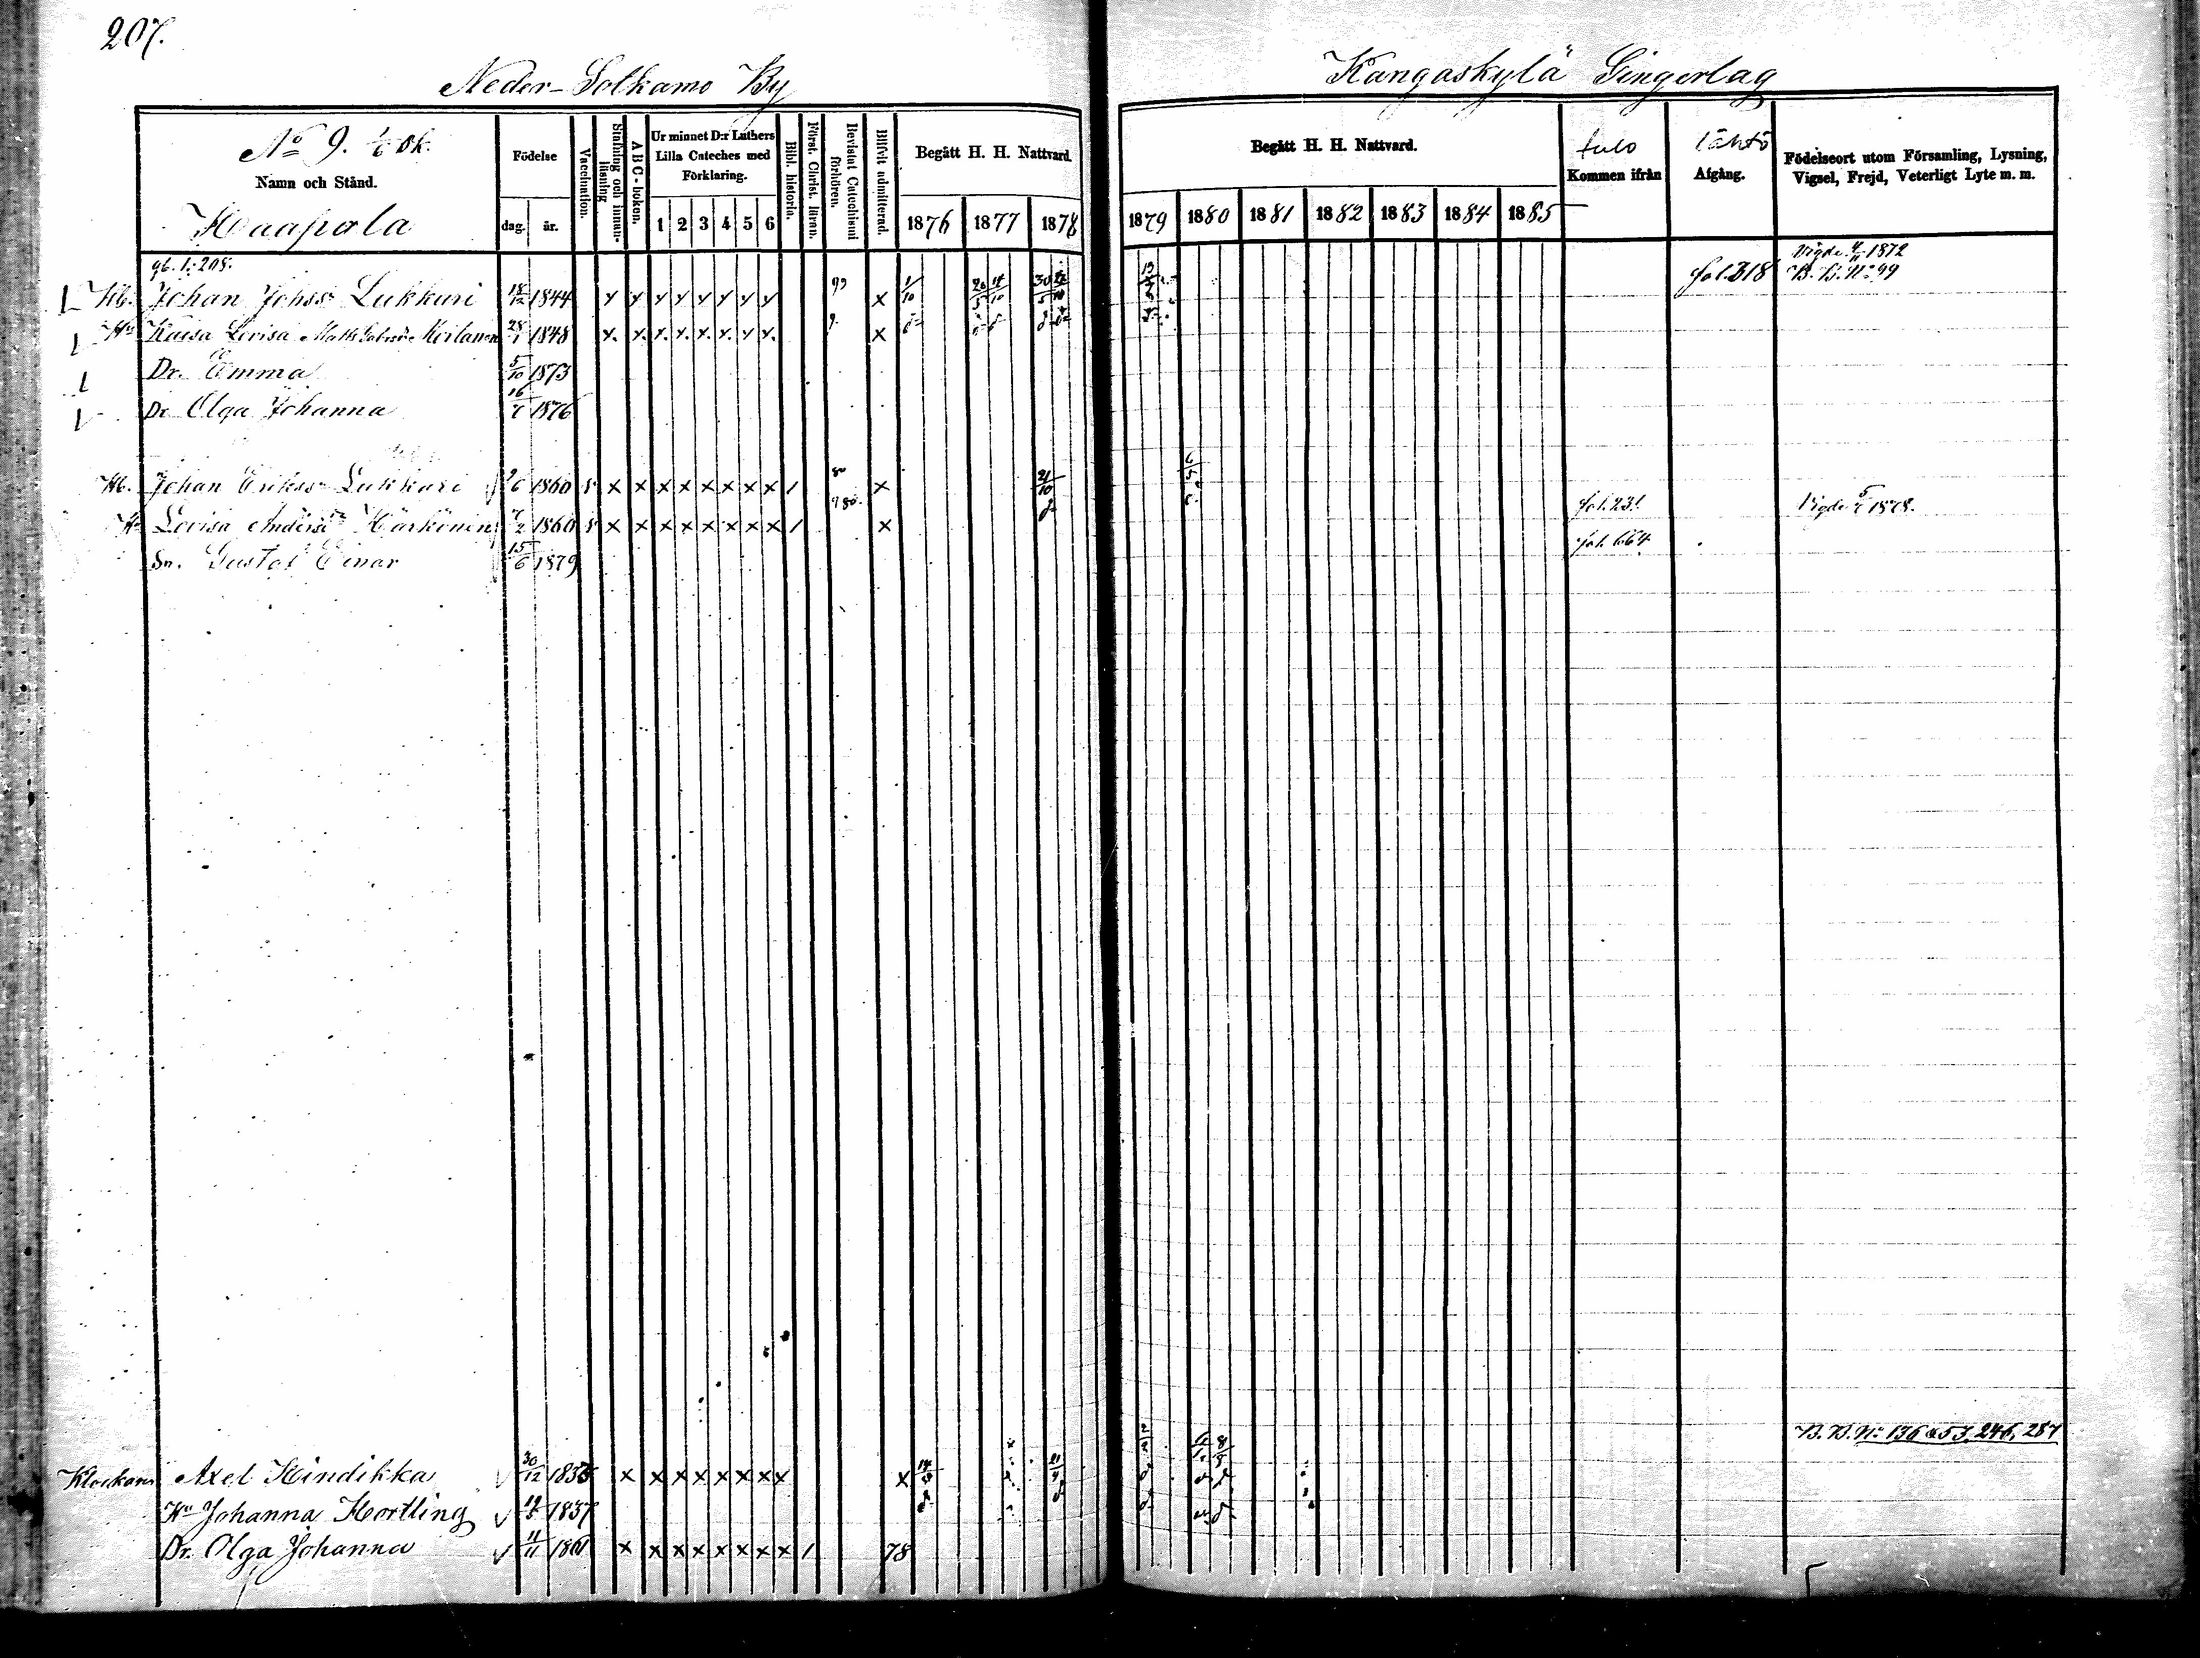 207.
Neder-Sotkamo By
Kangaskylä Gingerlag
No 9. 1/6 ok.
Namn och Stånd.
Haapola
Födelse
dag. år.
Vaccination.
Stafning och innanläsning
A B C - boken.
Ur minnet D:r Luthers Lilla Cateches med Förklaring.
1 2 3 4 5 6
Bibl. historia.
Först. Christ. läran.
Bevistat Catechismi förhören.
Blifvit admitterad.
Begått H. H. Nattvard.
1876 1877 1878
Begått H. H. Nattvard.
1879 1880 1881 1882 1883 1884 1885
tulo
Kommen ifrån
lähtö
Afgång.
Födelseort utom Församling, Lysning, Vigsel, Frejd, Veterligt Lyte m. m.
gb. 1: 208.
Hb. Johan Johss: Lukkuri 18/12 1844 fol. 318 B. B. No 99
Hu Kaisa Lovisa Matts Kerlanen 1848
Dr. Emma 5/10 1873
Dr. Olga Johanna 16/7 1876
Hb. Johan Erikss: Lukkari 1860
Hu Lovisa Anders Härkönen 7/2 1860 fol. 231 Vigde 1878.
Sn. Gustaf Einar 15/6 1879 fol. 664
B. B. No 136 253, 246, 287
Klockaren Axel Hindikka 30/12 1835
Hu Johanna Hortling 1837
Dr. Olga Johanna 11/11 1861 78